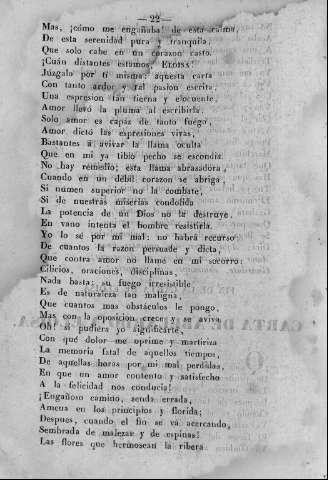 — 22 —
Mas, ¡cómo me engañaba! de esta calma,
De esta serenidad pura y tranquila,
Que solo cabe en un corazon casto.
¡Cuán distantes estamos, ELOISA!
Júzgalo por ti misma: aquesta carta
Con tanto ardor y tal pasion escrita,
Una espresion tan tierna y elocuente,
Amor llevó la pluma al escribirla.
Solo amor es capaz de tanto fuego,
Amor dictó las espresiones vivas,
Bastantes á avivar la llama oculta
Que en mi ya tibio pecho se escondia.
No hay remedio; esta llama abrasadora,
Cuando en un débil corazon se abriga,
Si númen superior no la combate,
Si de nuestras miserias condolida
La potencia de un Dios no la destruye,
En vano intenta el hombre resistirla.
Yo lo sé por mi mal: no habrá recurso
De cuantos la razon persuade y dicta,
Que contra amor no llamé en mi socorro:
Cilicios, oraciones, disciplinas,
Nada basta; su fuego irresistible
Es de naturaleza tan maligna,
Que cuantos mas obstáculos le pongo,
Mas con la oposicion crece y se aviva.
Oh! si pudiera yo significarte,
Con qué dolor me oprime y martiriza
La memoria fatal de aquellos tiempos,
De aquellas horas por mi mal perdidas,
En que un amor contento y satisfecho
A la felicidad nos conducia!
¡Engañoso camino, senda errada,
Amena en los principios y florida;
Despues, cuando el fin se va acercando,
Sembrada de malezas y de espinas!
Las flores que hermosean la ribera